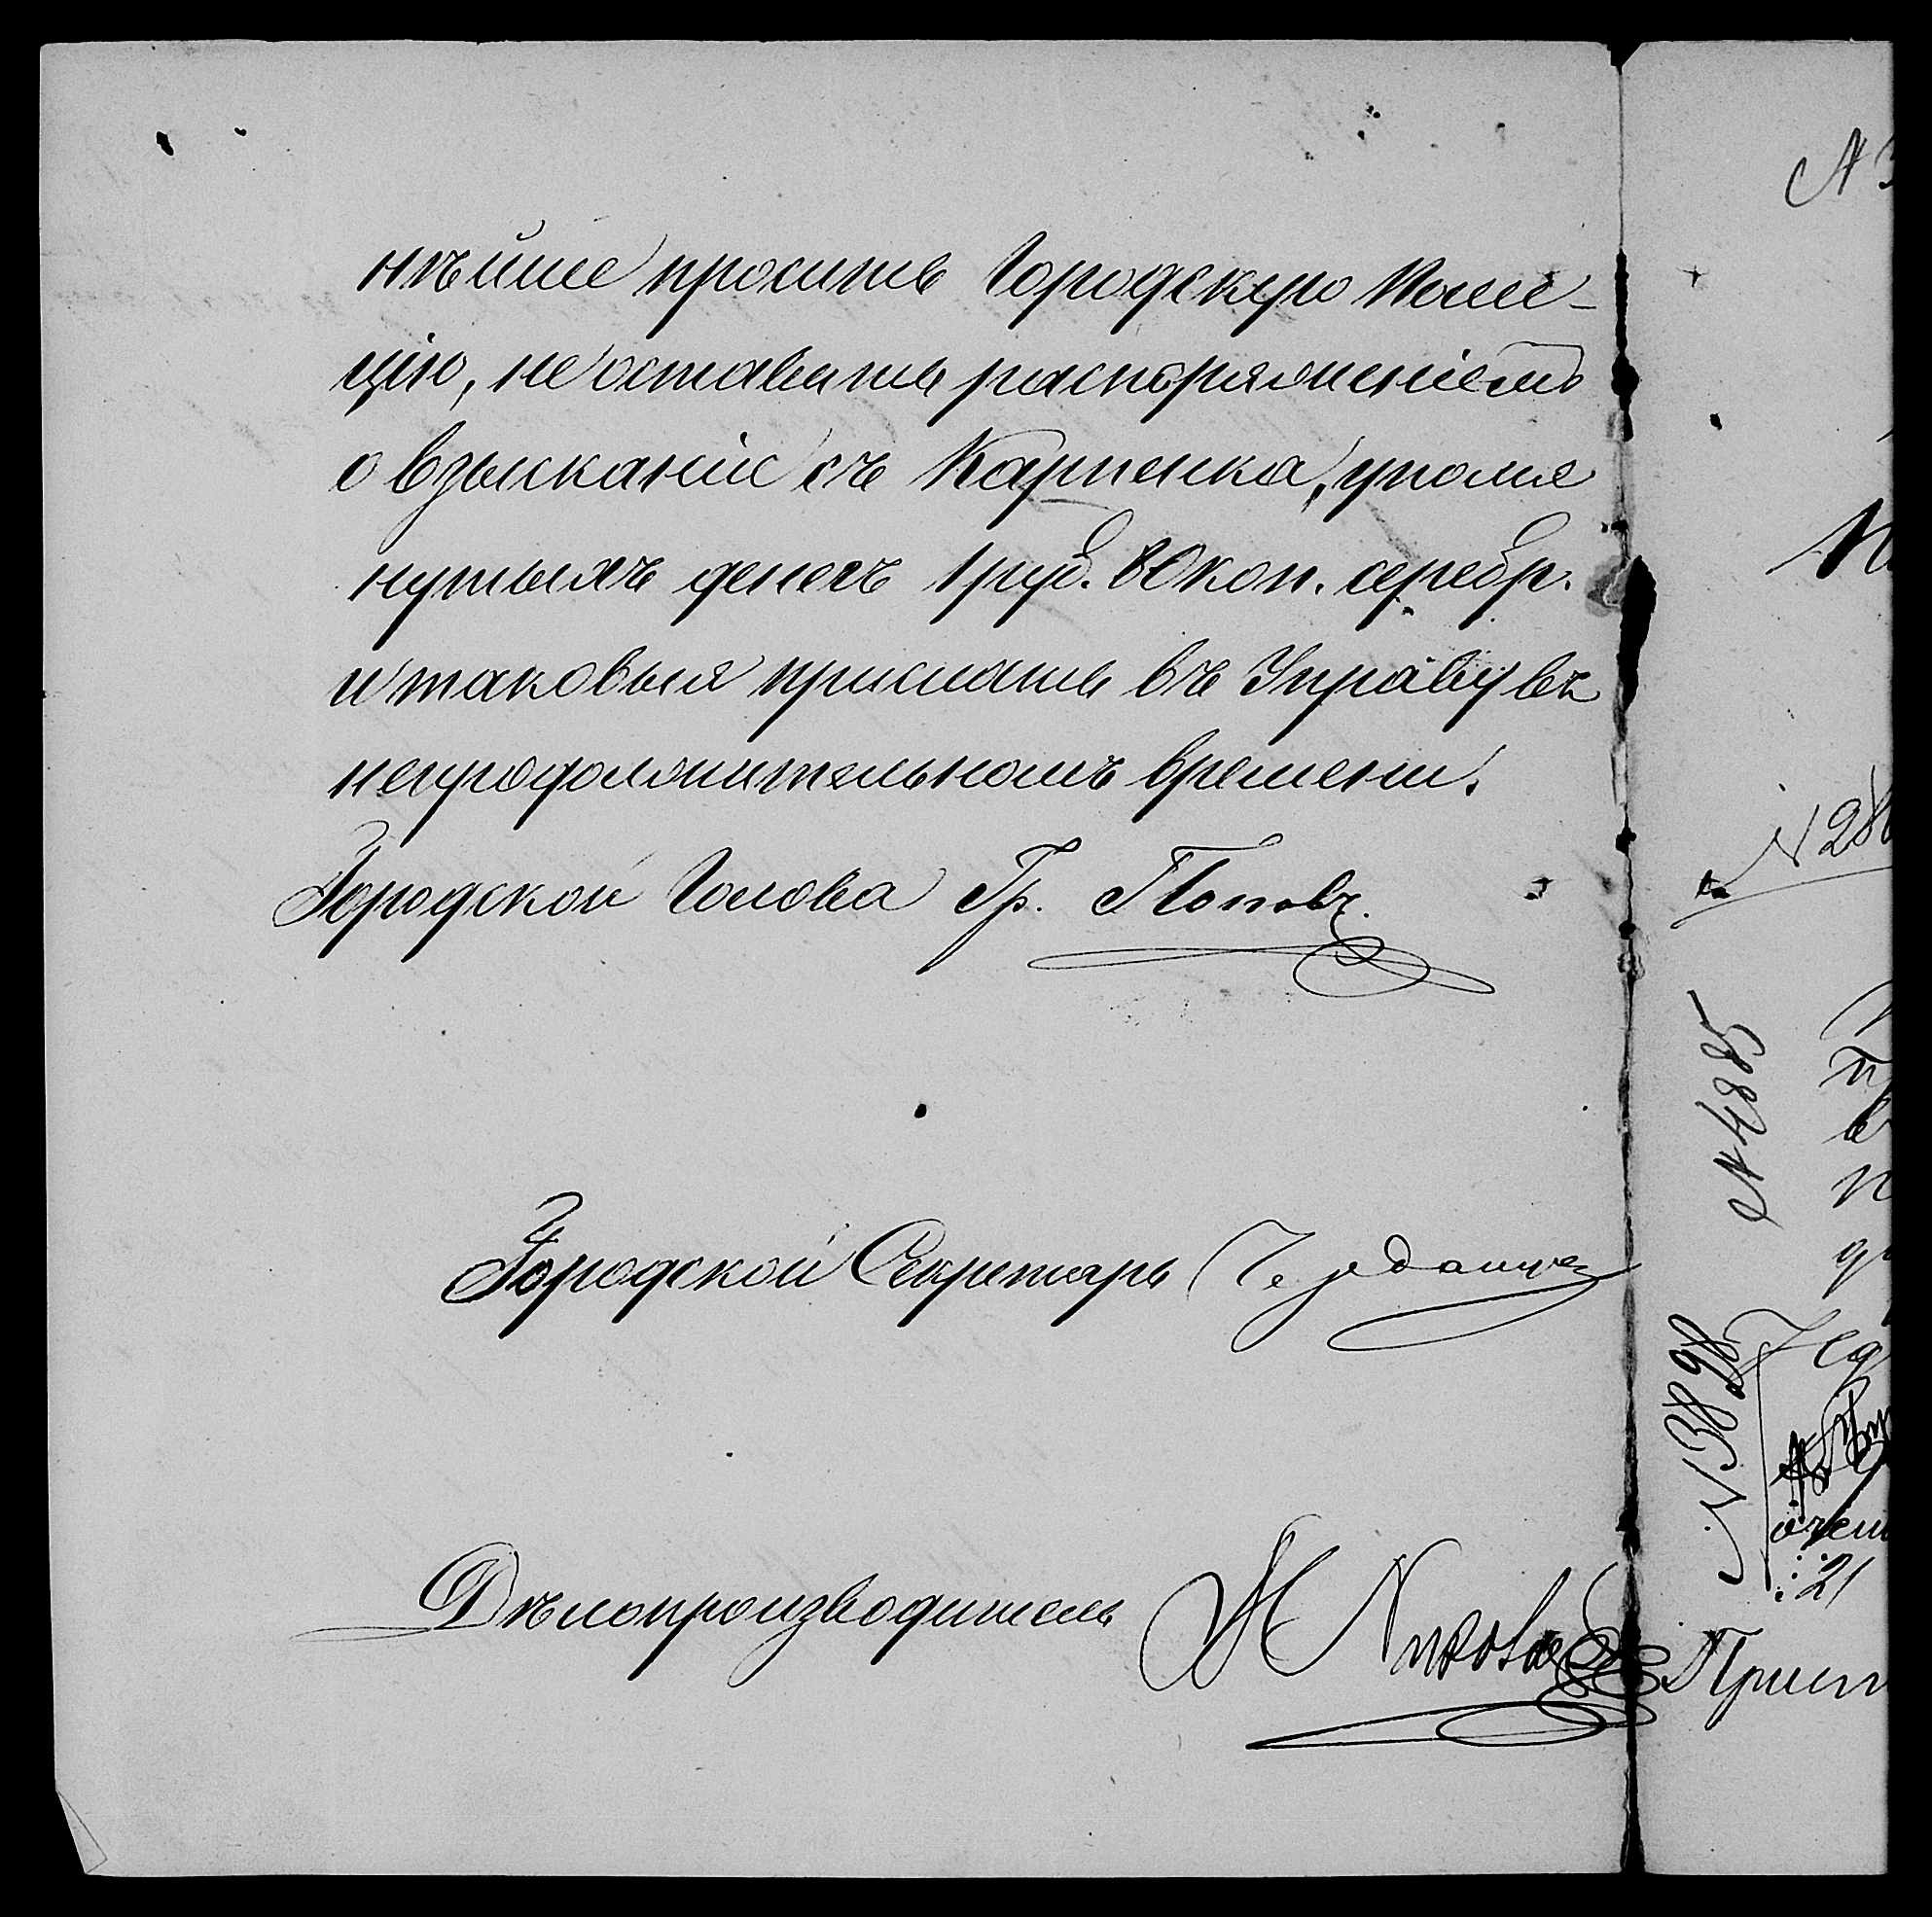 нѣйше просить Городскую Поли-
цію, не оставить распоряженіемъ
о взысканіи съ Карпенка, упомя
нутыхъ денегъ 1 руб. 80 коп. серебр.
и таковыя прислать въ Управу въ
непродолжительномъ времени.
Городской Голова Гр. Поповъ.
Городской Секретарь
Дѣлопроизводитель
N 4885
N 3898
21